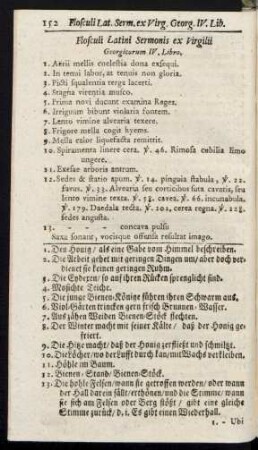 152 Flosculi Lat. Serm. ex Virg. Georg. IV. Lib.
Flosculi Latini Sermonis ex Virgilii
Georgicorum IV. Libro.
1. Aërii mellis coelestia dona exsequi.
2. In tenui labor, at tenuis non gloria.
3. Picti squalentia terga lacerti.
4. Stagna virentia musco.
5. Prima novi ducunt examina Reges.
6. Irriguum bibunt violaria fontem.
7. Lento vimine alvearia texere.
8. Frigore mella cogit hyems.
9. Mella calor liquefacta remittit.
10. Spiramenta linere cera. ℣. 46. Rimosa cubilia limo
ungere.
11. Exesae arboris antrum.
12. Sedes & statio apum, ℣. 14. pinguia stabula, ℣. 22.
favus. ℣. 33. Alvearia seu corticibus suta cavatis, seu
lento vimine texta. ℣. 58. cavea. ℣. 66. incunabula,
℣. 179. Daedala tecta. ℣. 202, cerea regna. ℣. 228.
sedes angusta.
13. - - - - concava pulsu
Saxa sonant, vocisque offensa resultat imago.
1. Den Honig / als eine Gabe vom Himmel beschreiben.
2. Die Arbeit gehet mit geringen Dingen um / aber doch ver-
dienet sie keinen geringen Ruhm.
3. Die Eydexen / so auf ihren Rücken sprenglicht sind.
4. Moßichte Teiche.
7. Die junge Bienen-Könige führen ihren Schwarm aus.
6. Viol-Gärten trincken gern frisch Brunnen-Wasser.
7. Aus zähen Weiden Bienen-Stöck flechten.
8. Der Winter macht mit seiner Kälte / daß der Honig ge-
friert.
9. Die Hitze macht / daß der Honig zerfliest und schmiltzt.
10. Die Löcher / wo der Lufft durch kan / mit Wachs verkleiben.
11. Höhle im Baum.
12. Bienen-Stand / Bienen-Stöck.
13. Die hohle Felsen / wann sie getroffen werden / oder wann
der Hall darein fällt / erthönen / und die Stimme / wann
sie sich am Felsen oder Berg stößt / gibt eine gleiche
Stimme zurück / d. i. Es gibt einen Wiederhall.
1. - Ubi